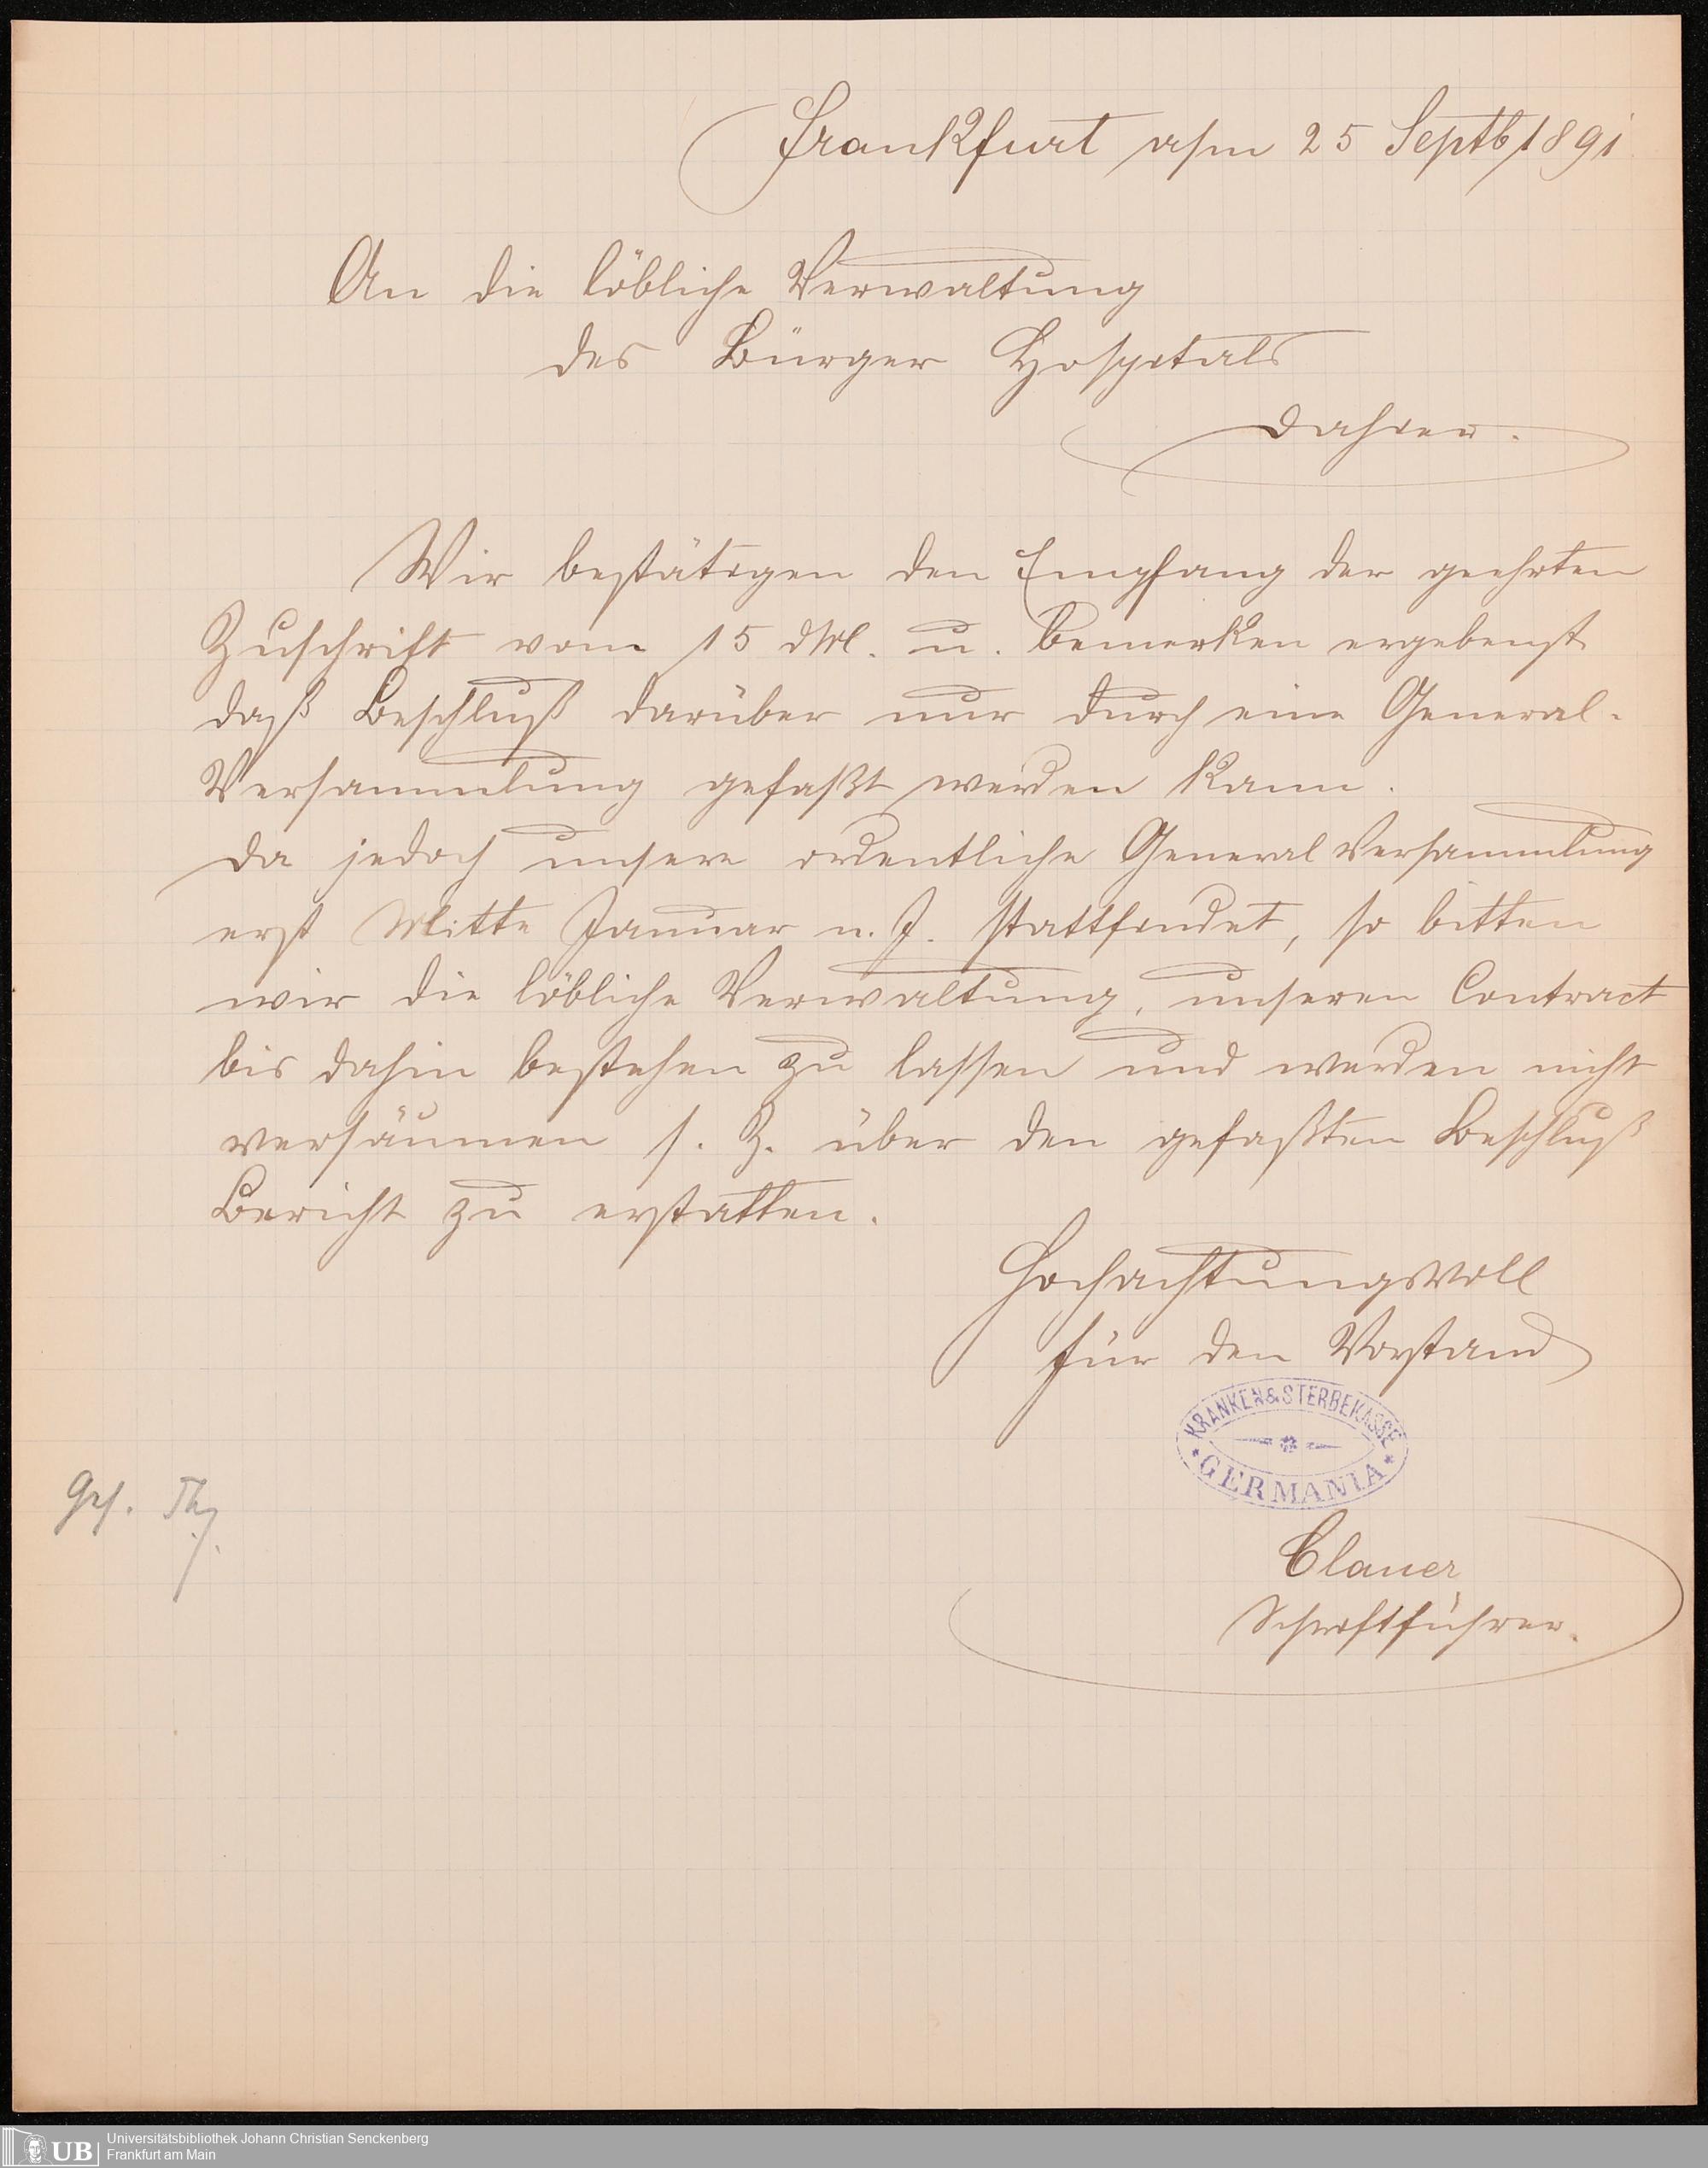 Frankfurt a/m 25 Septb 1891
An die löbliche Verwaltung
des Bürger Hospitals
dahier.
Wir bestätigen den Empfang der geehrten
Zuschrift vom 15 dM. u. bemerken ergebenst
daß Beschluß darüber nur durch eine General-
Versammlung gefaßt werden kann.
Da jedoch unsere ordentliche General Versammlung
erst Mitte Januar n. J. stattfindet, so bitten
wir die löbliche Verwaltung, unseren Contract
bis dahin bestehen zu lassen und werden nicht
versäumen s. Z. über den gefaßten Beschluß
Bericht zu erstatten.
Hochachtungsvoll
für den Vorstand
KRANKEN & STERBEKASSE
* GERMANIA *
Clauer
Schriftführer.
Ges.
UB
Universitätsbibliothek Johann Christian Senckenberg
Frankfurt am Main